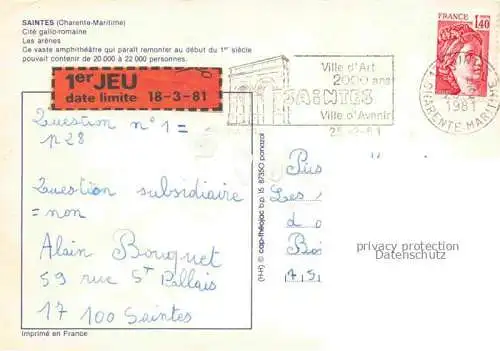 SAINTES (Charente-Maritime)
Cité gallo-romaine
Les arènes
Ce vaste amphithéâtre qui paraît remonter au début du 1er siècle
pouvait contenir de 20 000 à 22 000 personnes.
1er JEU
date limite 18-3-81
Ville d'Art
2000 ans
SAINTES
Ville d'Avenir
1,40
1981
CHARENTE-MARITIME
Question n°1 =
n28
Question subsidiaire
= non
Alain Bouquet
59 rue St Pallais
17 100 Saintes
Les
privacy protection
Datenschutz
Imprimé en France